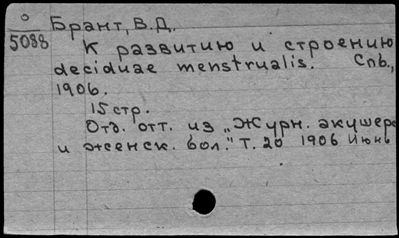 Брант, В.Д.
5088
К развитию и строению
deciduae menstrualis. Спб.,
1906.
15 стр.
Отд. отт. из „Журн. акушерс
и женск. бол." Т. 20 1906 Июнь